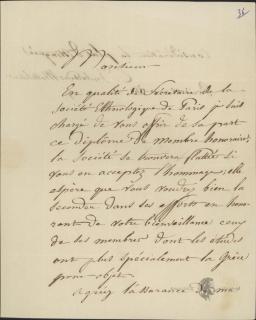 Monsieur
En qualité de Secrétaire de la
Société Ethnologique de Paris je suis
chargé de vous offrir de sa part
ce diplôme de membre honoraire;
la Société se trouvera flattée si
vous en acceptez l'hommage; elle
espère que vous voudrez bien la
seconder dans ses efforts en hono-
rant de votre bienveillance ceux
de ses membres dont les études
ont plus spécialement la Grèce
pour objet.
Agréez l'assurance de ma